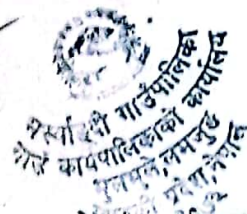 मर्स्याङदी गाउँपालिका
गाउँ कार्यपालिकाको कार्यालय
भुलभुले, लमजुङ
प्रदेश, नेपाल